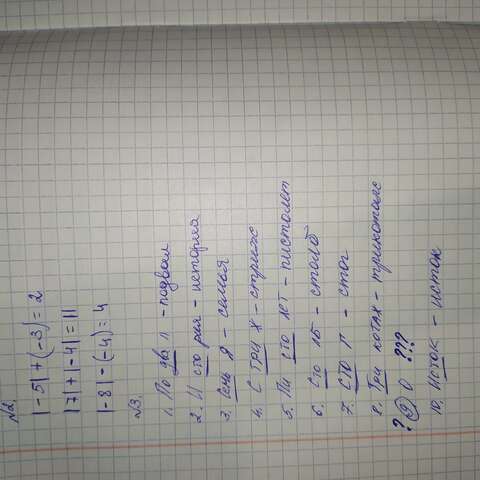 №2.
|-5|+(-3)=2
|7|+|-4|=11
|-8|-(-4)=4
№3.
1. По два л - подвал
2. И сто рия - история
3. Семь я - семья
4. С три ж - стриж
5. Пи сто лет - пистолет
6. Сто лб - столб
7. Сто г - стог
8. Три котаж - трикотаж
? 9. О ???
10. Исток - исток